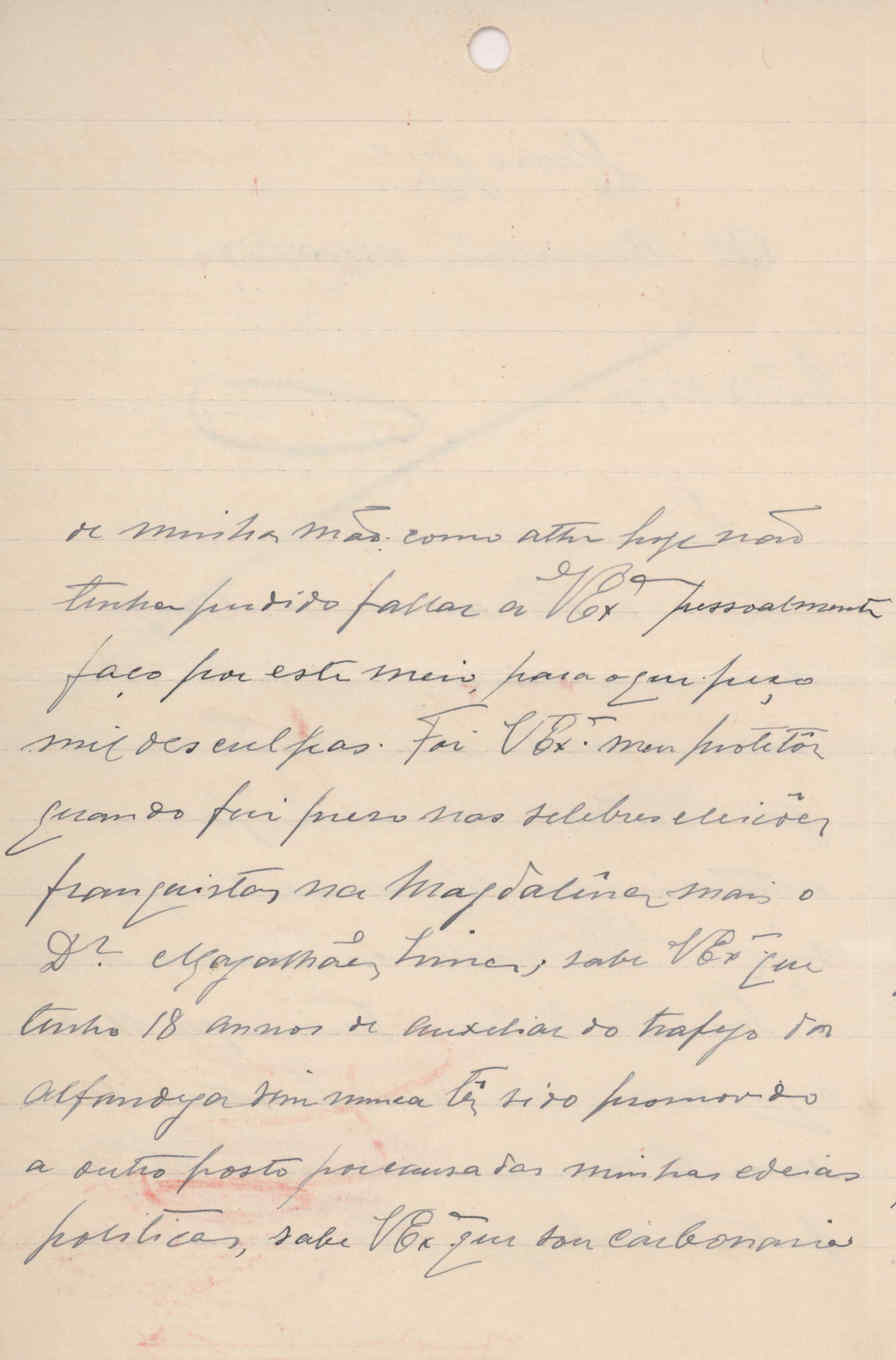 de minha mãe. como athe hoje não
tenha pudido fallar a VExª pessoalmente
faço por este meio, para o que peço
mil desculpas. Foi VExª meu protetôr
quando fui prezo nas selebres eleiciões
franquistas na Magdalêna mais o
Dr. Magalhães Lima; sabe VExª que
tenho 18 annos de auxeliar do trafego da
alfandega sem nunca têr sido promovido
a outro posto por causa das minhas edeias
politicas, sabe VExª que sou carbonario